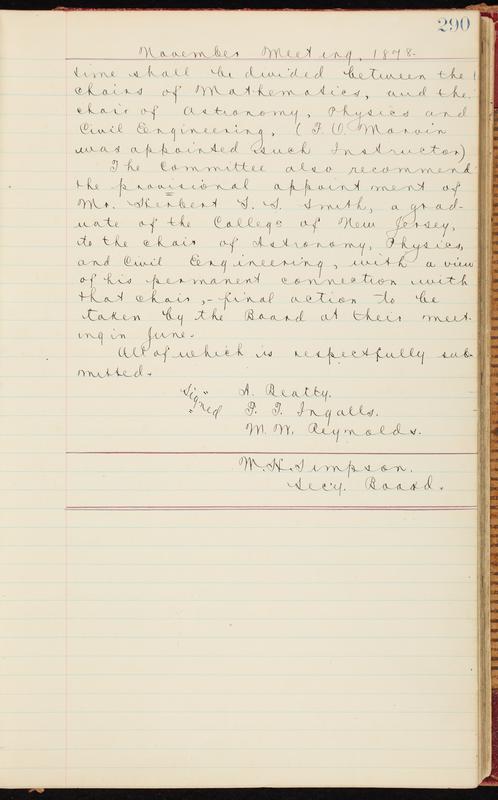 290
November Meeting, 1878.
time shall be divided between the
chairs of Mathematics, and the
chair of Astronomy, Physics and
Civil Engineering, (F. O. Marvin
was appointed such Instructor)
The Committee also recommend
the provisional appointment of
Mr. Herbert S. S. Smith, a grad-
uate of the College of New Jersey,
to the chair of Astronomy, Physics,
and Civil Engineering, with a view
of his permanent connection with
that chair, - final action to be
taken by the Board at their meet-
ing in June.
All of which is respectfully sub-
mitted.
"Signed" A. Beatty.
P. T. Ingalls.
M. W. Reynolds.
W. H. Simpson.
Secy. Board.